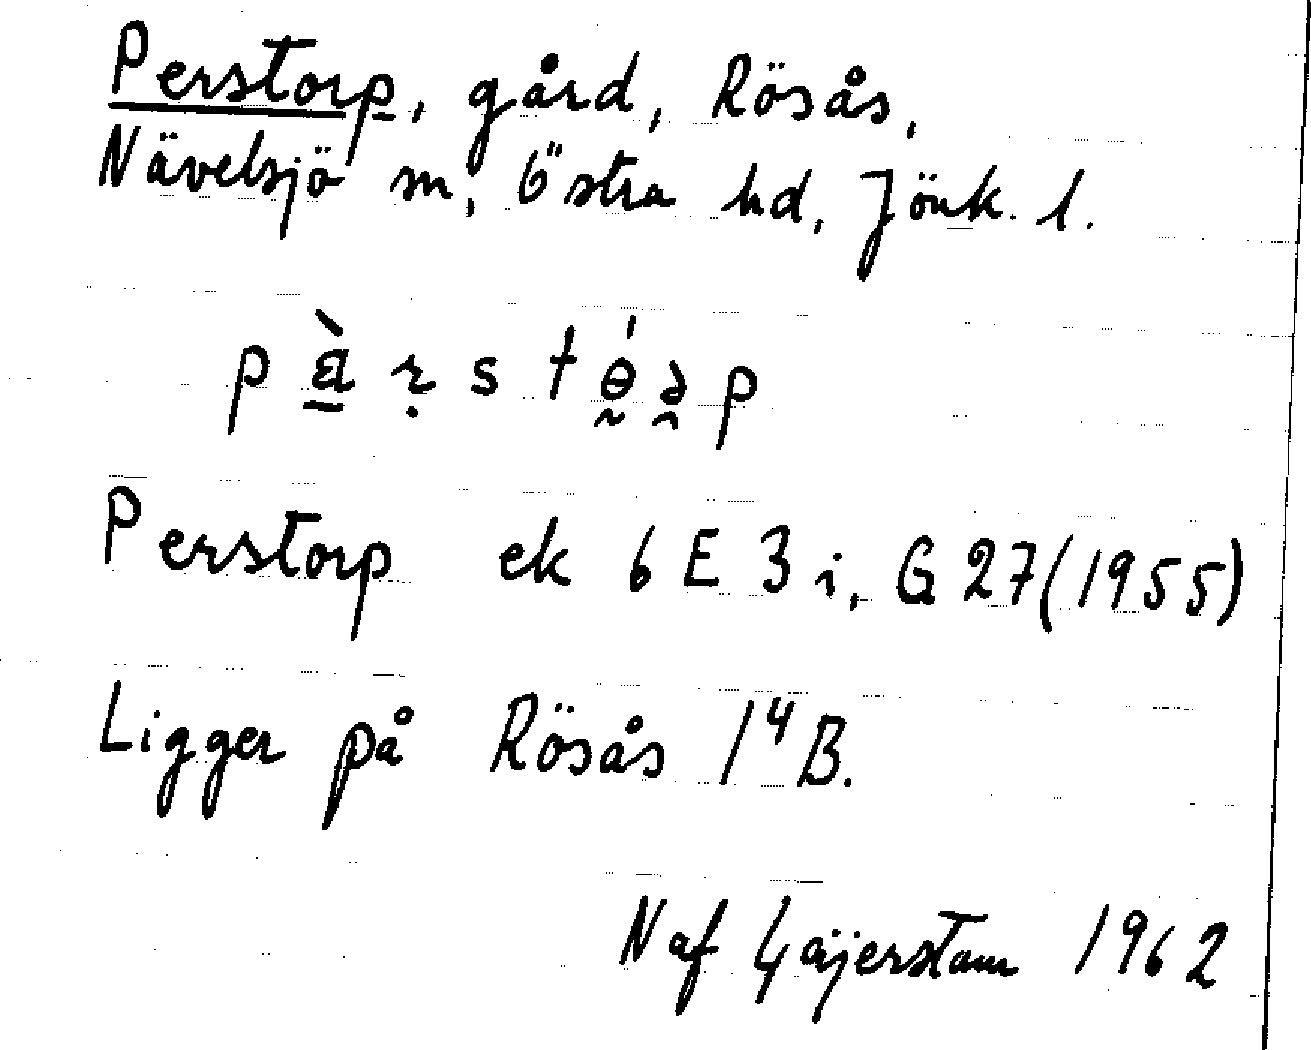 Perstorp, gård, Rösås,
Nävelsjö sn, Östra hd, Jönk. l.
Perstorp ek 6 E 3 i, G 27 (1955)
Ligger på Rösås 1⁴ B.
N af Geijerstam 1962